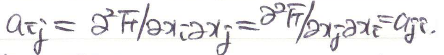 aij = ∂²F/∂xi∂xj = ∂²F/∂xj∂xi = aji.